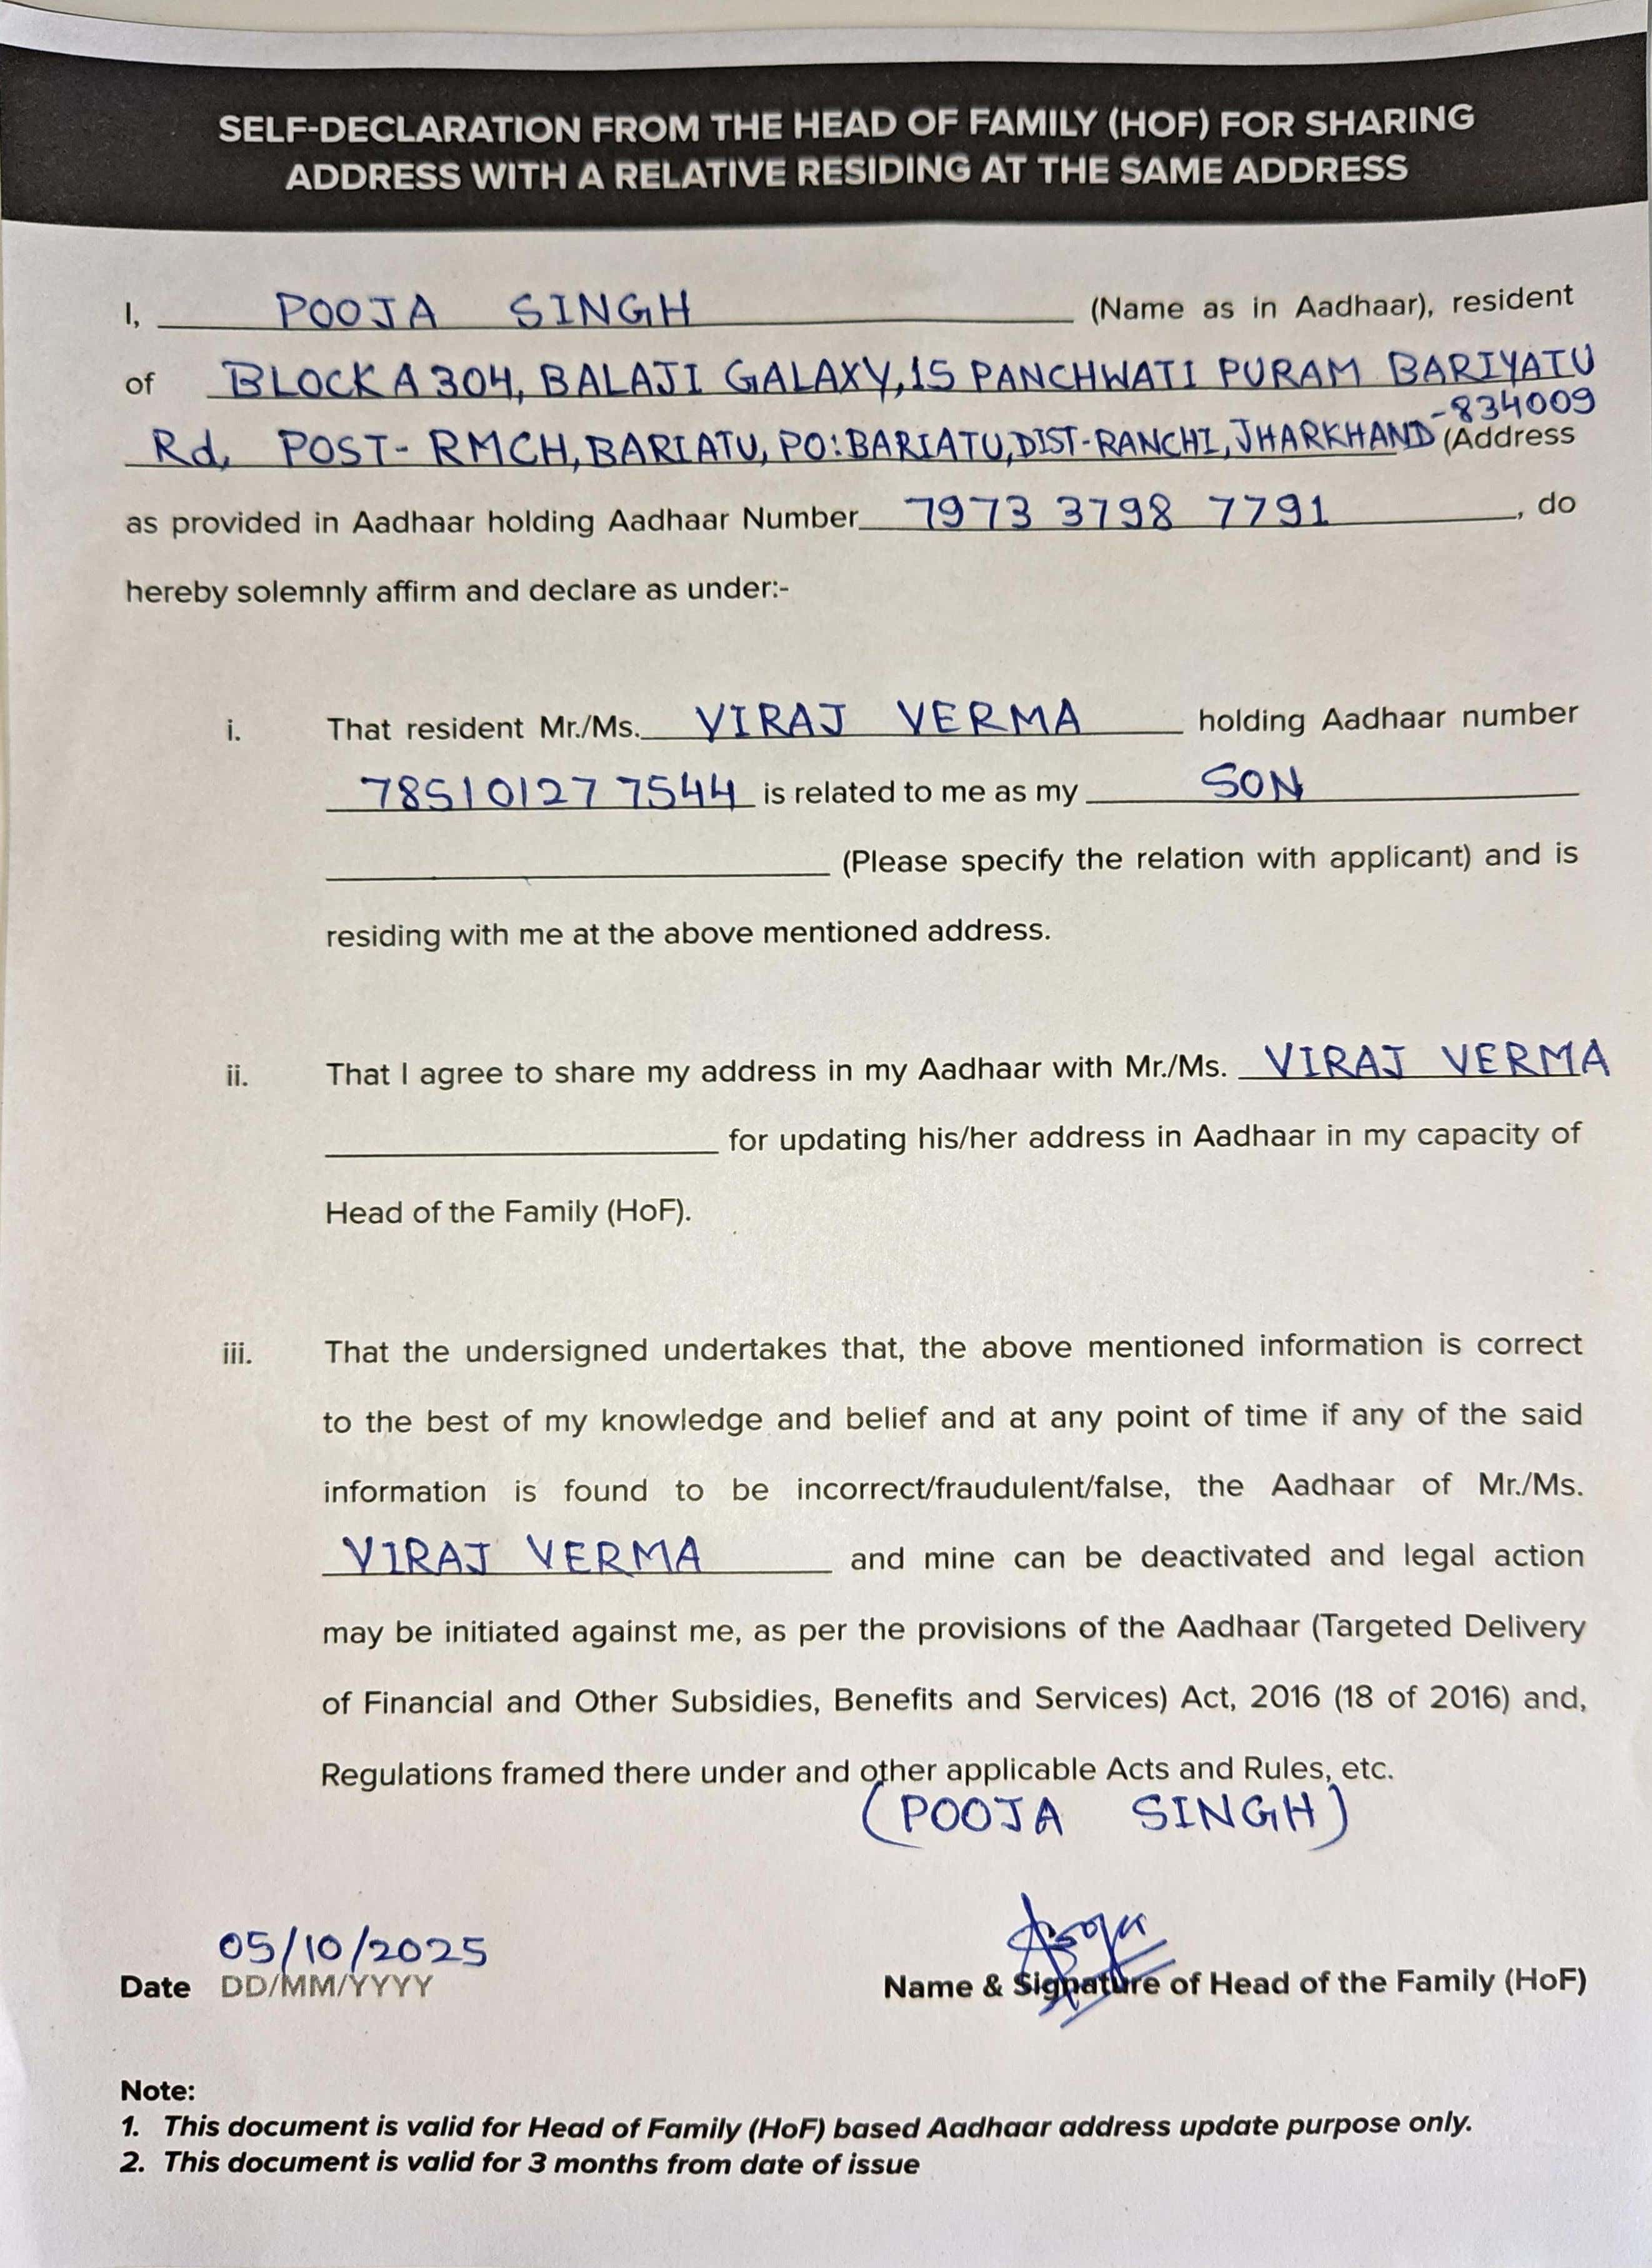 SELF-DECLARATION FROM THE HEAD OF FAMILY (HOF) FOR SHARING
ADDRESS WITH A RELATIVE RESIDING AT THE SAME ADDRESS
I, POOJA SINGH (Name as in Aadhaar), resident
of BLOCK A 304, BALAJI GALAXY, 15 PANCHWATI PURAM BARIYATU
-834009
Rd, POST- RMCH, BARIATU, PO: BARIATU, DIST-RANCHI, JHARKHAND (Address
as provided in Aadhaar holding Aadhaar Number 7973 3798 7791, do
hereby solemnly affirm and declare as under:-
i. That resident Mr./Ms. VIRAJ VERMA holding Aadhaar number
7851 0127 7544 is related to me as my SON
(Please specify the relation with applicant) and is
residing with me at the above mentioned address.
ii. That I agree to share my address in my Aadhaar with Mr./Ms. VIRAJ VERMA
for updating his/her address in Aadhaar in my capacity of
Head of the Family (HoF).
iii. That the undersigned undertakes that, the above mentioned information is correct
to the best of my knowledge and belief and at any point of time if any of the said
information is found to be incorrect/fraudulent/false, the Aadhaar of Mr./Ms.
VIRAJ VERMA and mine can be deactivated and legal action
may be initiated against me, as per the provisions of the Aadhaar (Targeted Delivery
of Financial and Other Subsidies, Benefits and Services) Act, 2016 (18 of 2016) and,
Regulations framed there under and other applicable Acts and Rules, etc.
(POOJA SINGH)
05/10/2025 Pooja
Date DD/MM/YYYY Name & Signature of Head of the Family (HoF)
Note:
1. This document is valid for Head of Family (HoF) based Aadhaar address update purpose only.
2. This document is valid for 3 months from date of issue